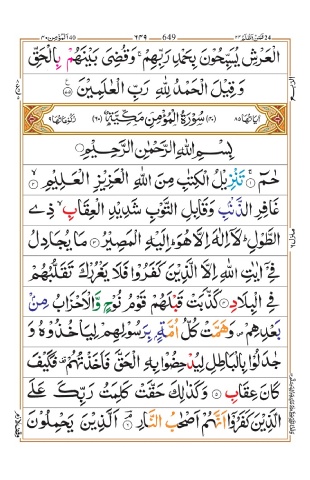 فمن اظلم ٢٤ 649 ٦٤٩ المؤمن ٤٠
الْعَرْشِ يُسَبِّحُوْنَ بِحَمْدِ رَبِّهِمْ ۚ وَقُضِىَ بَيْنَهُمْ بِالْحَقِّ
وَقِيْلَ الْحَمْدُ لِلّٰهِ رَبِّ الْعٰلَمِيْنَ ۝٧٥
اٰيَاتُهَا ٨٥ (٤٠) سُوْرَةُ الْمُؤْمِنِ مَكِّيَّةٌ (٦٠) رُكُوْعَاتُهَا ٩
بِسْمِ اللّٰهِ الرَّحْمٰنِ الرَّحِيْمِ
حٰمٓ ۝١ تَنْزِيْلُ الْكِتٰبِ مِنَ اللّٰهِ الْعَزِيْزِ الْعَلِيْمِ ۝٢
غَافِرِ الذَّنْۢبِ وَقَابِلِ التَّوْبِ شَدِيْدِ الْعِقَابِ ذِى
الطَّوْلِ ؕ لَاۤ اِلٰهَ اِلَّا هُوَ ؕ اِلَيْهِ الْمَصِيْرُ ۝٣ مَا يُجَادِلُ
فِىْۤ اٰيٰتِ اللّٰهِ اِلَّا الَّذِيْنَ كَفَرُوْا فَلَا يَغْرُرْكَ تَقَلُّبُهُمْ
فِى الْبِلَادِ ۝٤ كَذَّبَتْ قَبْلَهُمْ قَوْمُ نُوْحٍ وَّالْاَحْزَابُ مِنْۢ
بَعْدِهِمْ ۪ وَهَمَّتْ كُلُّ اُمَّةٍۭ بِرَسُوْلِهِمْ لِيَاْخُذُوْهُ وَ
جٰدَلُوْا بِالْبَاطِلِ لِيُدْحِضُوْا بِهِ الْحَقَّ فَاَخَذْتُهُمْ ۫ فَكَيْفَ
كَانَ عِقَابِ ۝٥ وَكَذٰلِكَ حَقَّتْ كَلِمَتُ رَبِّكَ عَلَى
الَّذِيْنَ كَفَرُوْۤا اَنَّهُمْ اَصْحٰبُ النَّارِ ۝٦ اَلَّذِيْنَ يَحْمِلُوْنَ